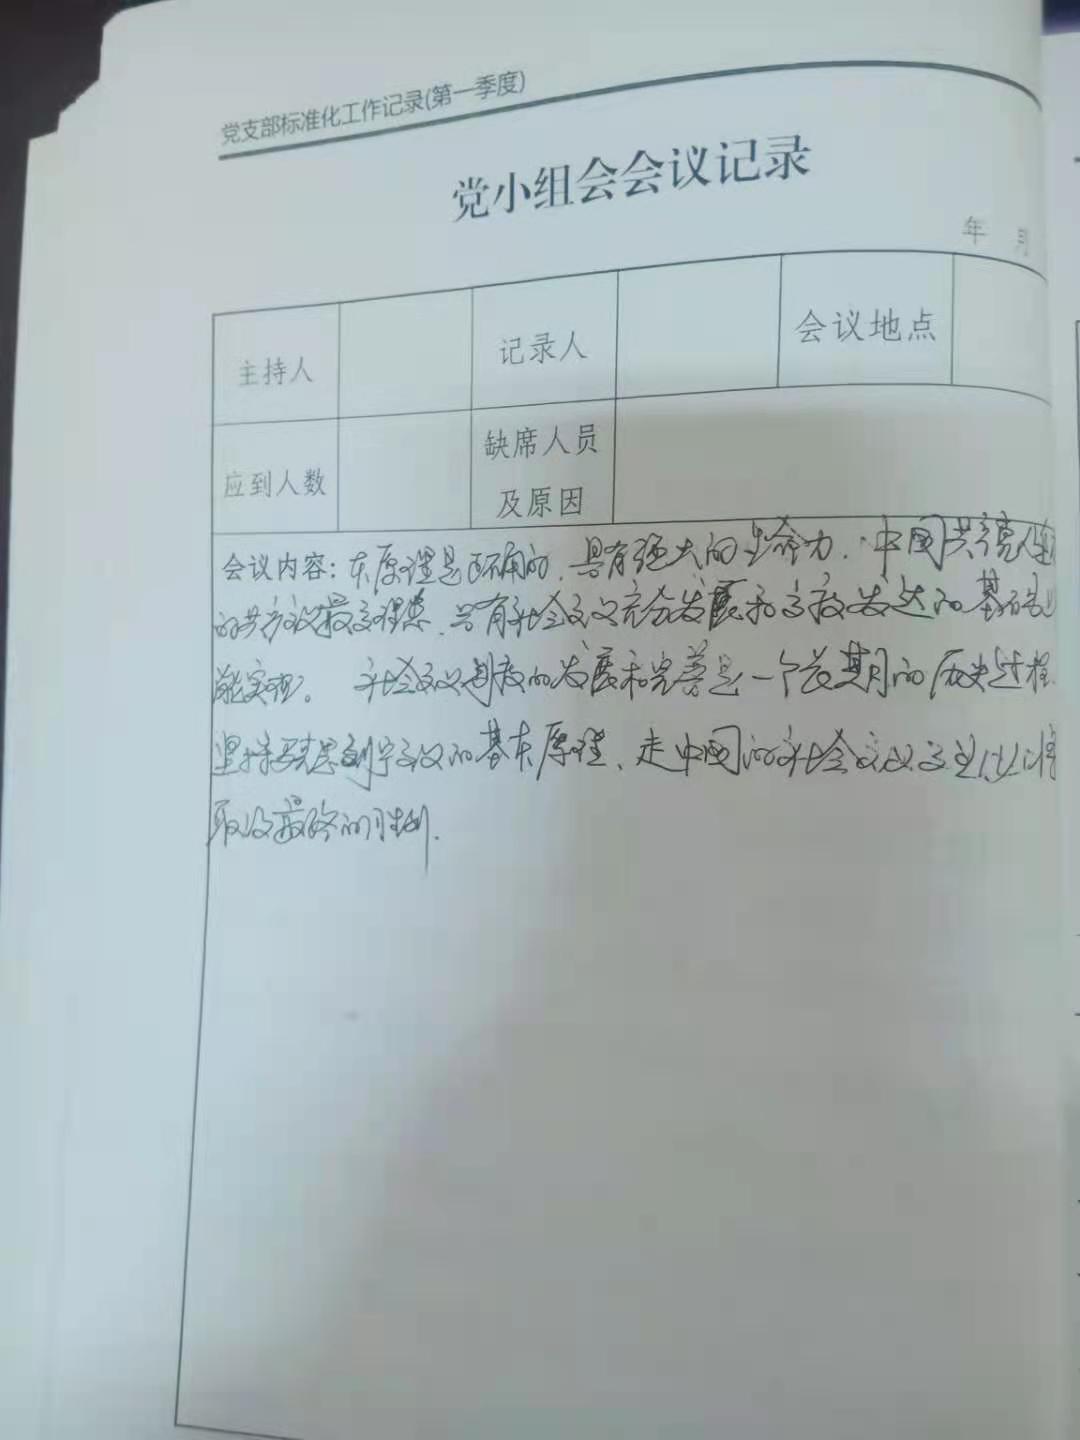 党支部标准化工作记录(第一季度)
党小组会会议记录
年 月
主持人 记录人 会议地点
应到人数 缺席人员
及原因
会议内容：本原理是正确的，具有强大的生命力．中国共产党人追
的共产主义最高理想，只有社会主义充分发展和高度发达的基础上
能实现。 社会主义制度的发展和完善是一个长期的历史过程
坚持马克思列宁主义的基本原理、走中国的社会主义
取得最终的胜利．